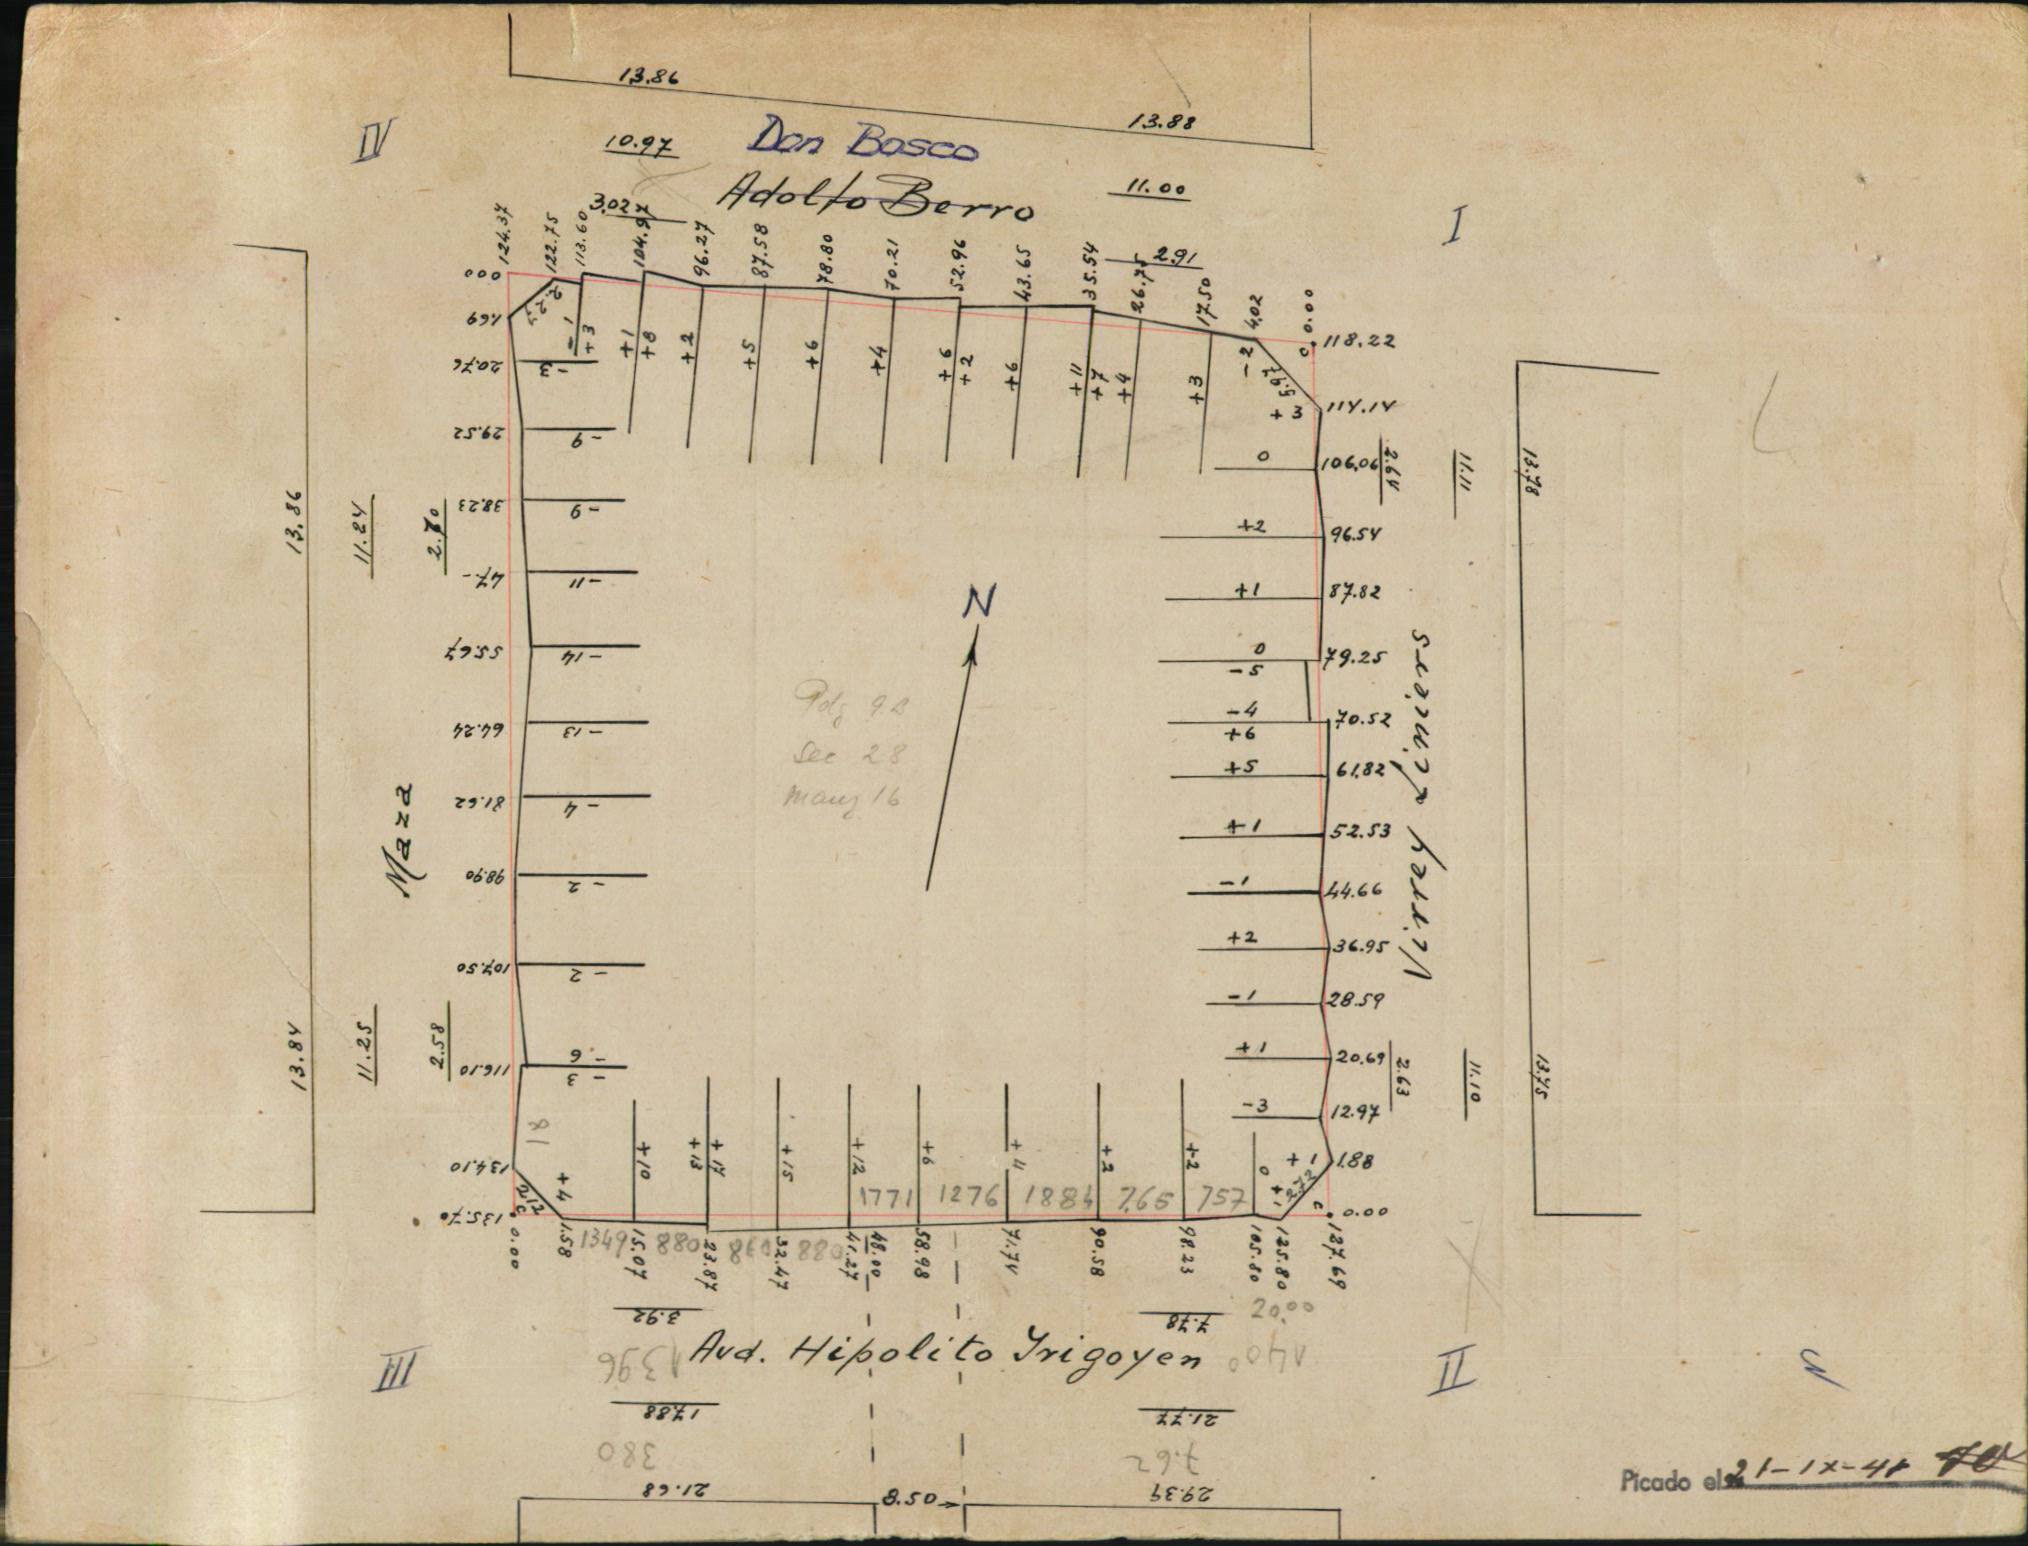 13.86
13.88
IV
10.97
Don Bosco
11.00
Adolfo Berro
I
3.02
2.91
124.37
122.75
113.60
104.97
96.27
87.58
78.80
70.21
52.96
43.65
35.54
26.75
17.50
4.02
0.00
000
1.69
-1
+3
+1
+8
+2
+5
+6
+4
+6
+2
+6
+11
+7
+4
+3
-2
5.97
+3
118.22
114.14
20.76
-3
29.52
-9
38.23
-9
47.-
-11
55.67
-14
64.24
-13
81.62
-4
98.90
-2
107.50
-2
116.10
-6
-3
134.10
135.70
13.86
11.24
2.70
Maza
13.84
11.25
2.58
N
Sec 28
Manz 16
0
106.06
+2
96.54
+1
87.82
0
79.25
-5
-4
70.52
+6
+5
61.82
+1
52.53
-1
44.66
+2
36.95
-1
28.59
+1
20.69
-3
12.97
+1
1.88
0.00
2.64
11.11
13.78
Virrey Liniers
2.63
11.10
13.75
18
+4
212
+10
+13
+17
+15
+12
+6
+4
+2
+2
0
+1
272
1771
1276
1884
765
757
0.00
1.58
1349
15.07
880
23.87
32.47
880
41.27
48.00
58.98
71.74
90.58
98.23
105.80
125.80
127.69
3.92
7.78
20.00
1396
Avd. Hipolito Irigoyen
1400
III
II
17.88
21.77
380
7.62
21.68
8.50
29.39
Picado el 21-IX-41